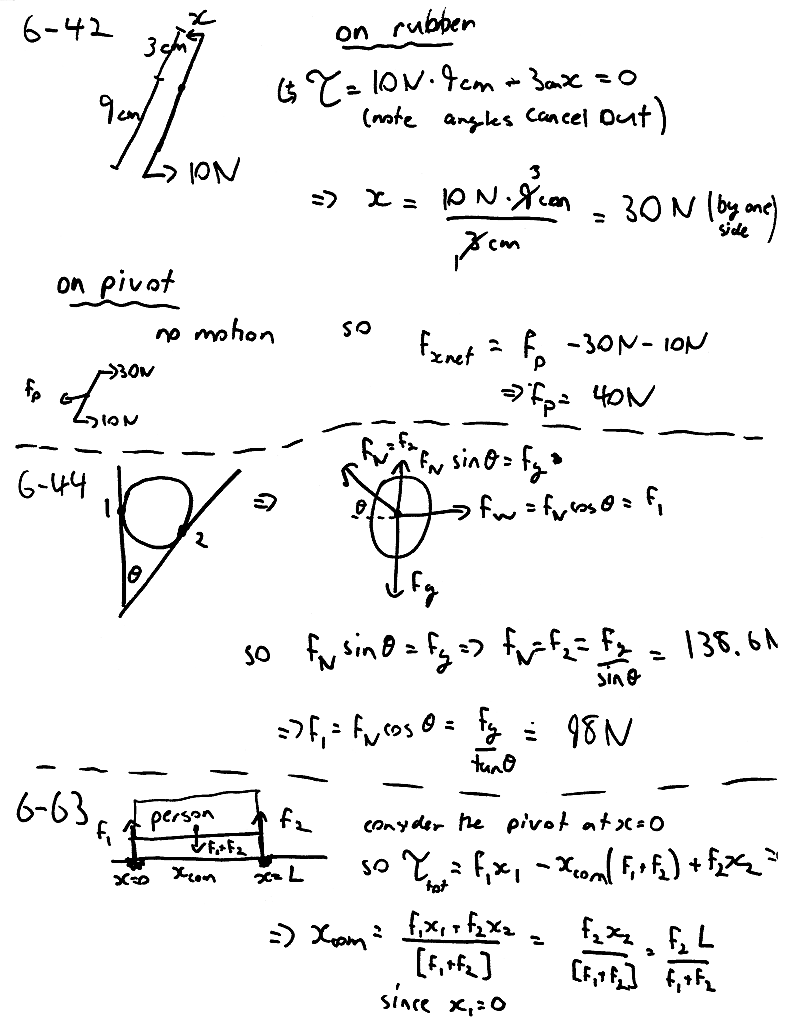 6-42
x
3cm
9cm
10N
on rubber
τ = 10N·9cm - 3cm x = 0
(note angles cancel out)
=> x = 10 N · 9 cm / 3 cm = 30 N (by one side)
3
1
on pivot
no motion so Fxnet = Fp - 30N - 10N
=> Fp = 40N
30N
fp
10N
6-44
1
2
θ
=>
FN = F2
FN sin θ = Fg
θ
Fw = FN cos θ = F1
Fg
so FN sin θ = Fg => FN = F2 = Fg / sin θ = 138.6N
=> F1 = FN cos θ = Fg / tan θ = 98N
6-63
F1
person
F2
F1+F2
x=0 xcom x=L
consyder the pivot at x=0
so τtot = F1x1 - xcom(F1+F2) + F2x2 =
=> xcom = F1x1 + F2x2 / [F1+F2] = F2x2 / [F1+F2] = F2 L / F1+F2
since x1=0